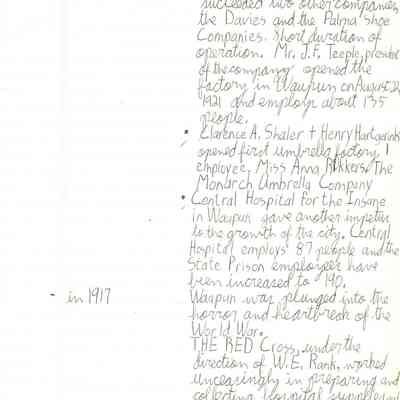 succeeded two other companies,
the Davies and the Palma Shoe
Companies. Short duration of
operation. Mr. J.F. Teeple, president
of the company opened the
factory in Waupun on August 22,
1921 and employs about 135
people.
Clarence A. Shaler + Henry Hartgerink
opened first umbrella factory, 1
employee, Miss Anna Rikkers. The
Monarch Umbrella Company
Central Hospital for the Insane
in Waupun gave another impetus
to the growth of the city. Central
Hospital employs 87 people and the
State Prison employees have
been increased to 190.
- in 1917 Waupun was plunged into the
horror and heartbreak of the
World War.
THE RED Cross, under the
direction of W.E. Rank, worked
unceasingly in preparing and
collecting Hospital supplies and